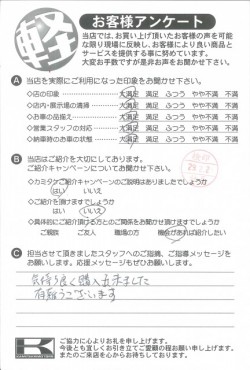 軽
お客様アンケート
当店では、お買い上げ頂いたお客様の声を可能
な限り現場に反映し、お客様により良い商品と
サービスを提供する事に努めています。
大変お手数ですが是非お声をお聞かせ下さい。
A 当店を実際にご利用になった印象をお聞かせ下さい。
◇店の印象 大満足 満足 ふつう やや不満 不満
◇店内・展示場の清掃 大満足 満足 ふつう やや不満 不満
◇お車の品揃え 大満足 満足 ふつう やや不満 不満
◇営業スタッフの対応 大満足 満足 ふつう やや不満 不満
◇納車時のお車の状態 大満足 満足 ふつう やや不満 不満
B 当店はご紹介を大切にしております。
ご紹介キャンペーンについてお聞かせ下さい。
◇カミタケご紹介キャンペーンのご説明はありましたでしょうか
はい いいえ
◇ご紹介を頂けますでしょうか
はい いいえ
◇具体的にご紹介頂ける方とのご関係をお聞かせ頂けますでしょうか
ご親族 ご友人 職場の方 機会があれば紹介したい
C 担当させて頂きましたスタッフへのご指摘、ご指導を
お願いします。応援メッセージもぜひお願いします。
気持ち良く購入出来ました
有難うございます
K
ご協力に心よりお礼を申し上げます。
今後とも宜しくお引き立てご愛顧の程お願い申し上げます。
またのご来店を心からお待ちしております。